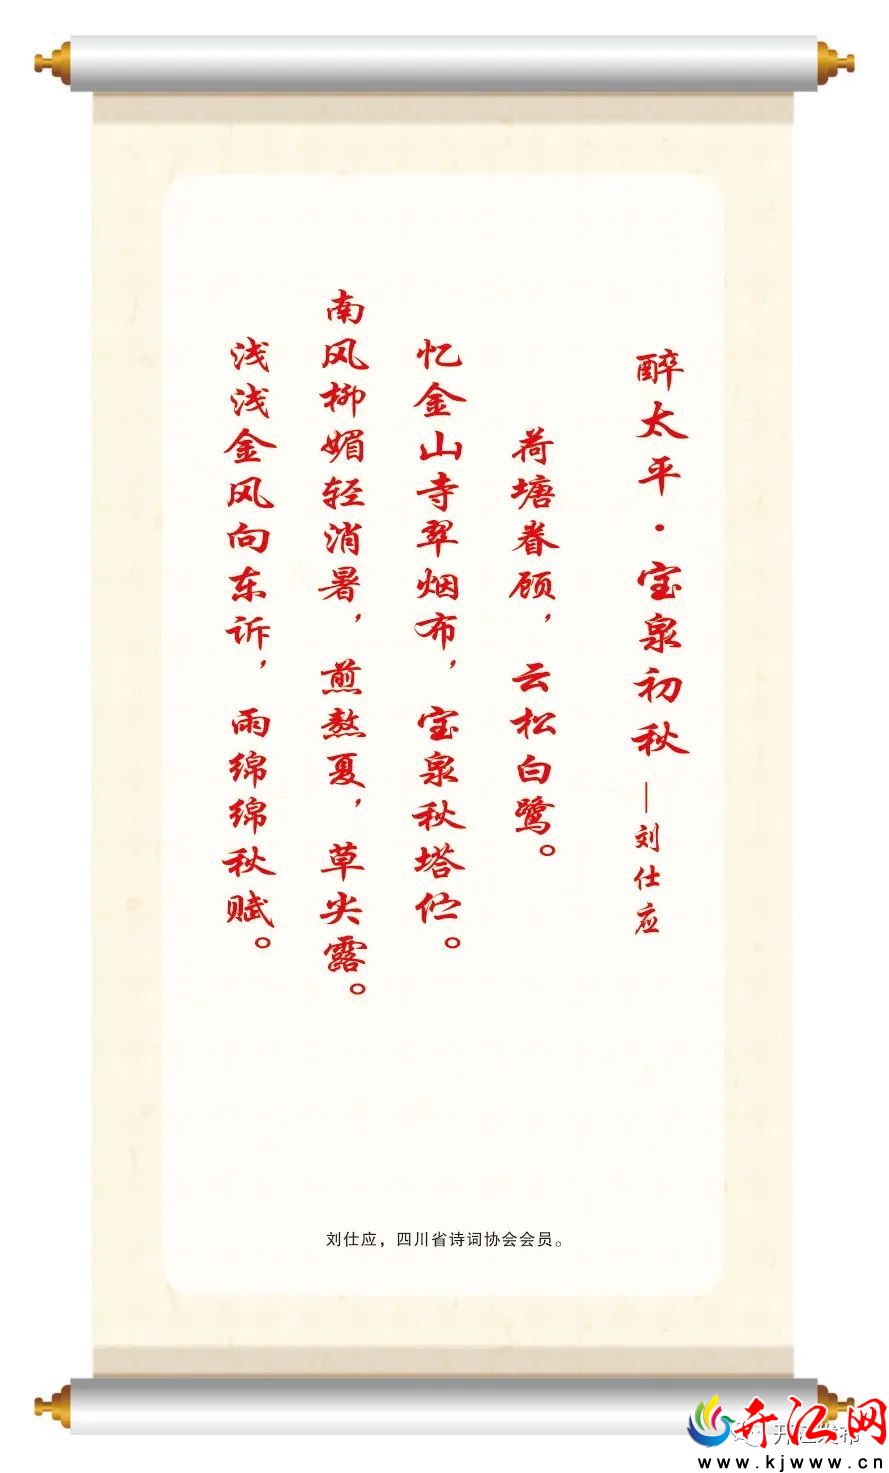 醉太平·宝泉初秋 —刘仕应
荷塘眷顾，云松白鹭。
忆金山寺翠烟布，宝泉秋塔伫。
南风柳媚轻消暑，煎熬夏，草尖露。
浅浅金风向东诉，雨绵绵秋赋。
刘仕应，四川省诗词协会会员。
开江网
开江发布
www.kjwww.cn